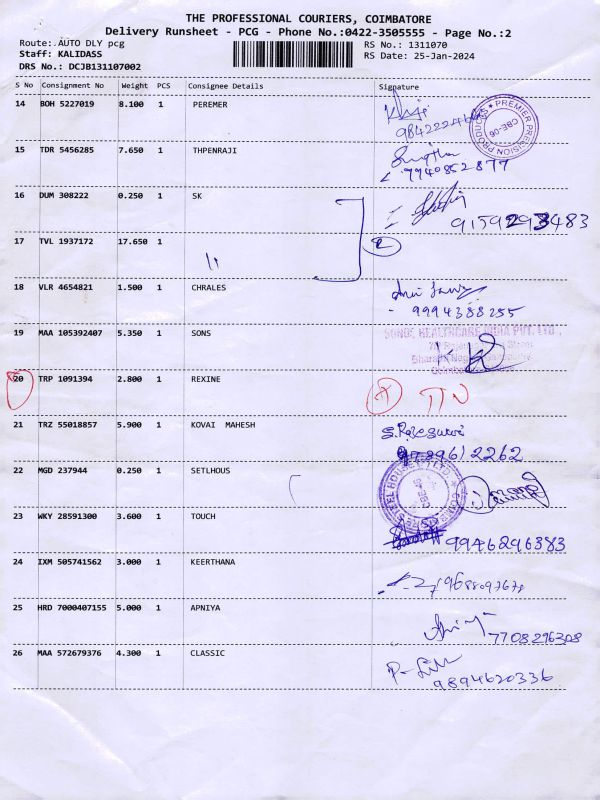 THE PROFESSIONAL COURIERS, COIMBATORE
Delivery Runsheet - PCG - Phone No.:0422-3505555 - Page No.:2
Route:.AUTO DLY pcg
RS No.: 1311070
Staff: KALIDASS
RS Date: 25-Jan-2024
DRS No.: DCJB131107002
S No Consignment No Weight PCS Consignee Details Signature
14 BOH 5227019 8.100 1 PEREMER
PREMIER PRECISION PRODUCTS CBE-06
15 TDR 5456285 7.650 1 THPENRAJI
7940852877
16 DUM 308222 0.250 1 SK
9159293483
17 TVL 1937172 17.650 1
18 VLR 4654821 1.500 1 CHRALES
9994388255
19 MAA 105392407 5.350 1 SONS
HEALTHCARE INDIA PVT. LTD.
20 TRP 1091394 2.800 1 REXINE
21 TRZ 55018857 5.900 1 KOVAI MAHESH
22 MGD 237944 0.250 1 SETLHOUS
23 WKY 28591300 3.600 1 TOUCH
9946296383
24 IXM 505741562 3.000 1 KEERTHANA
25 HRD 7000407155 5.000 1 APNIYA
7708296308
26 MAA 572679376 4.300 1 CLASSIC
9894620336